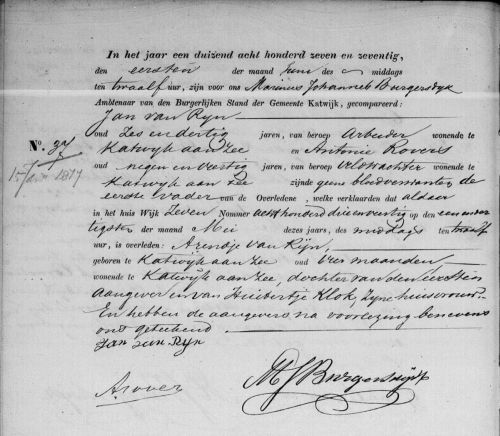 In het jaar een duizend acht honderd zeven en zeventig,
den eersten der maand Juni des middags
ten twaalf uur, zijn voor ons Marinus Johannes Burgersdijk
Ambtenaar van den Burgerlijken Stand der Gemeente Katwijk, gecompareerd:
Jan van Rijn
oud zes en dertig jaren, van beroep arbeider wonende te
No. 37
Katwijk aan Zee en Antonie Rovers
oud negen en veertig jaren, van beroep veldwachter wonende te
1 Juni 1877
Katwijk aan Zee zijnde geene bloedverwanten, de
eerste vader van de Overledene, welke verklaarden dat aldaar
in het huis Wijk Zeven Nommer acht honderd drie en veertig op den een en der
tigsten der maand Mei dezes jaars, des middags ten twaalf
uur, is overleden: Arendje van Rijn,
geboren te Katwijk aan Zee oud vier maanden
wonende te Katwijk aan Zee, dochter van den eersten
aangever en van Huibertje Klok, zijne huisvrouw.
En hebben de aangevers na voorlezing benevens
ons geteekend
Jan van Ryn
A rover
MJ Burgersdijk